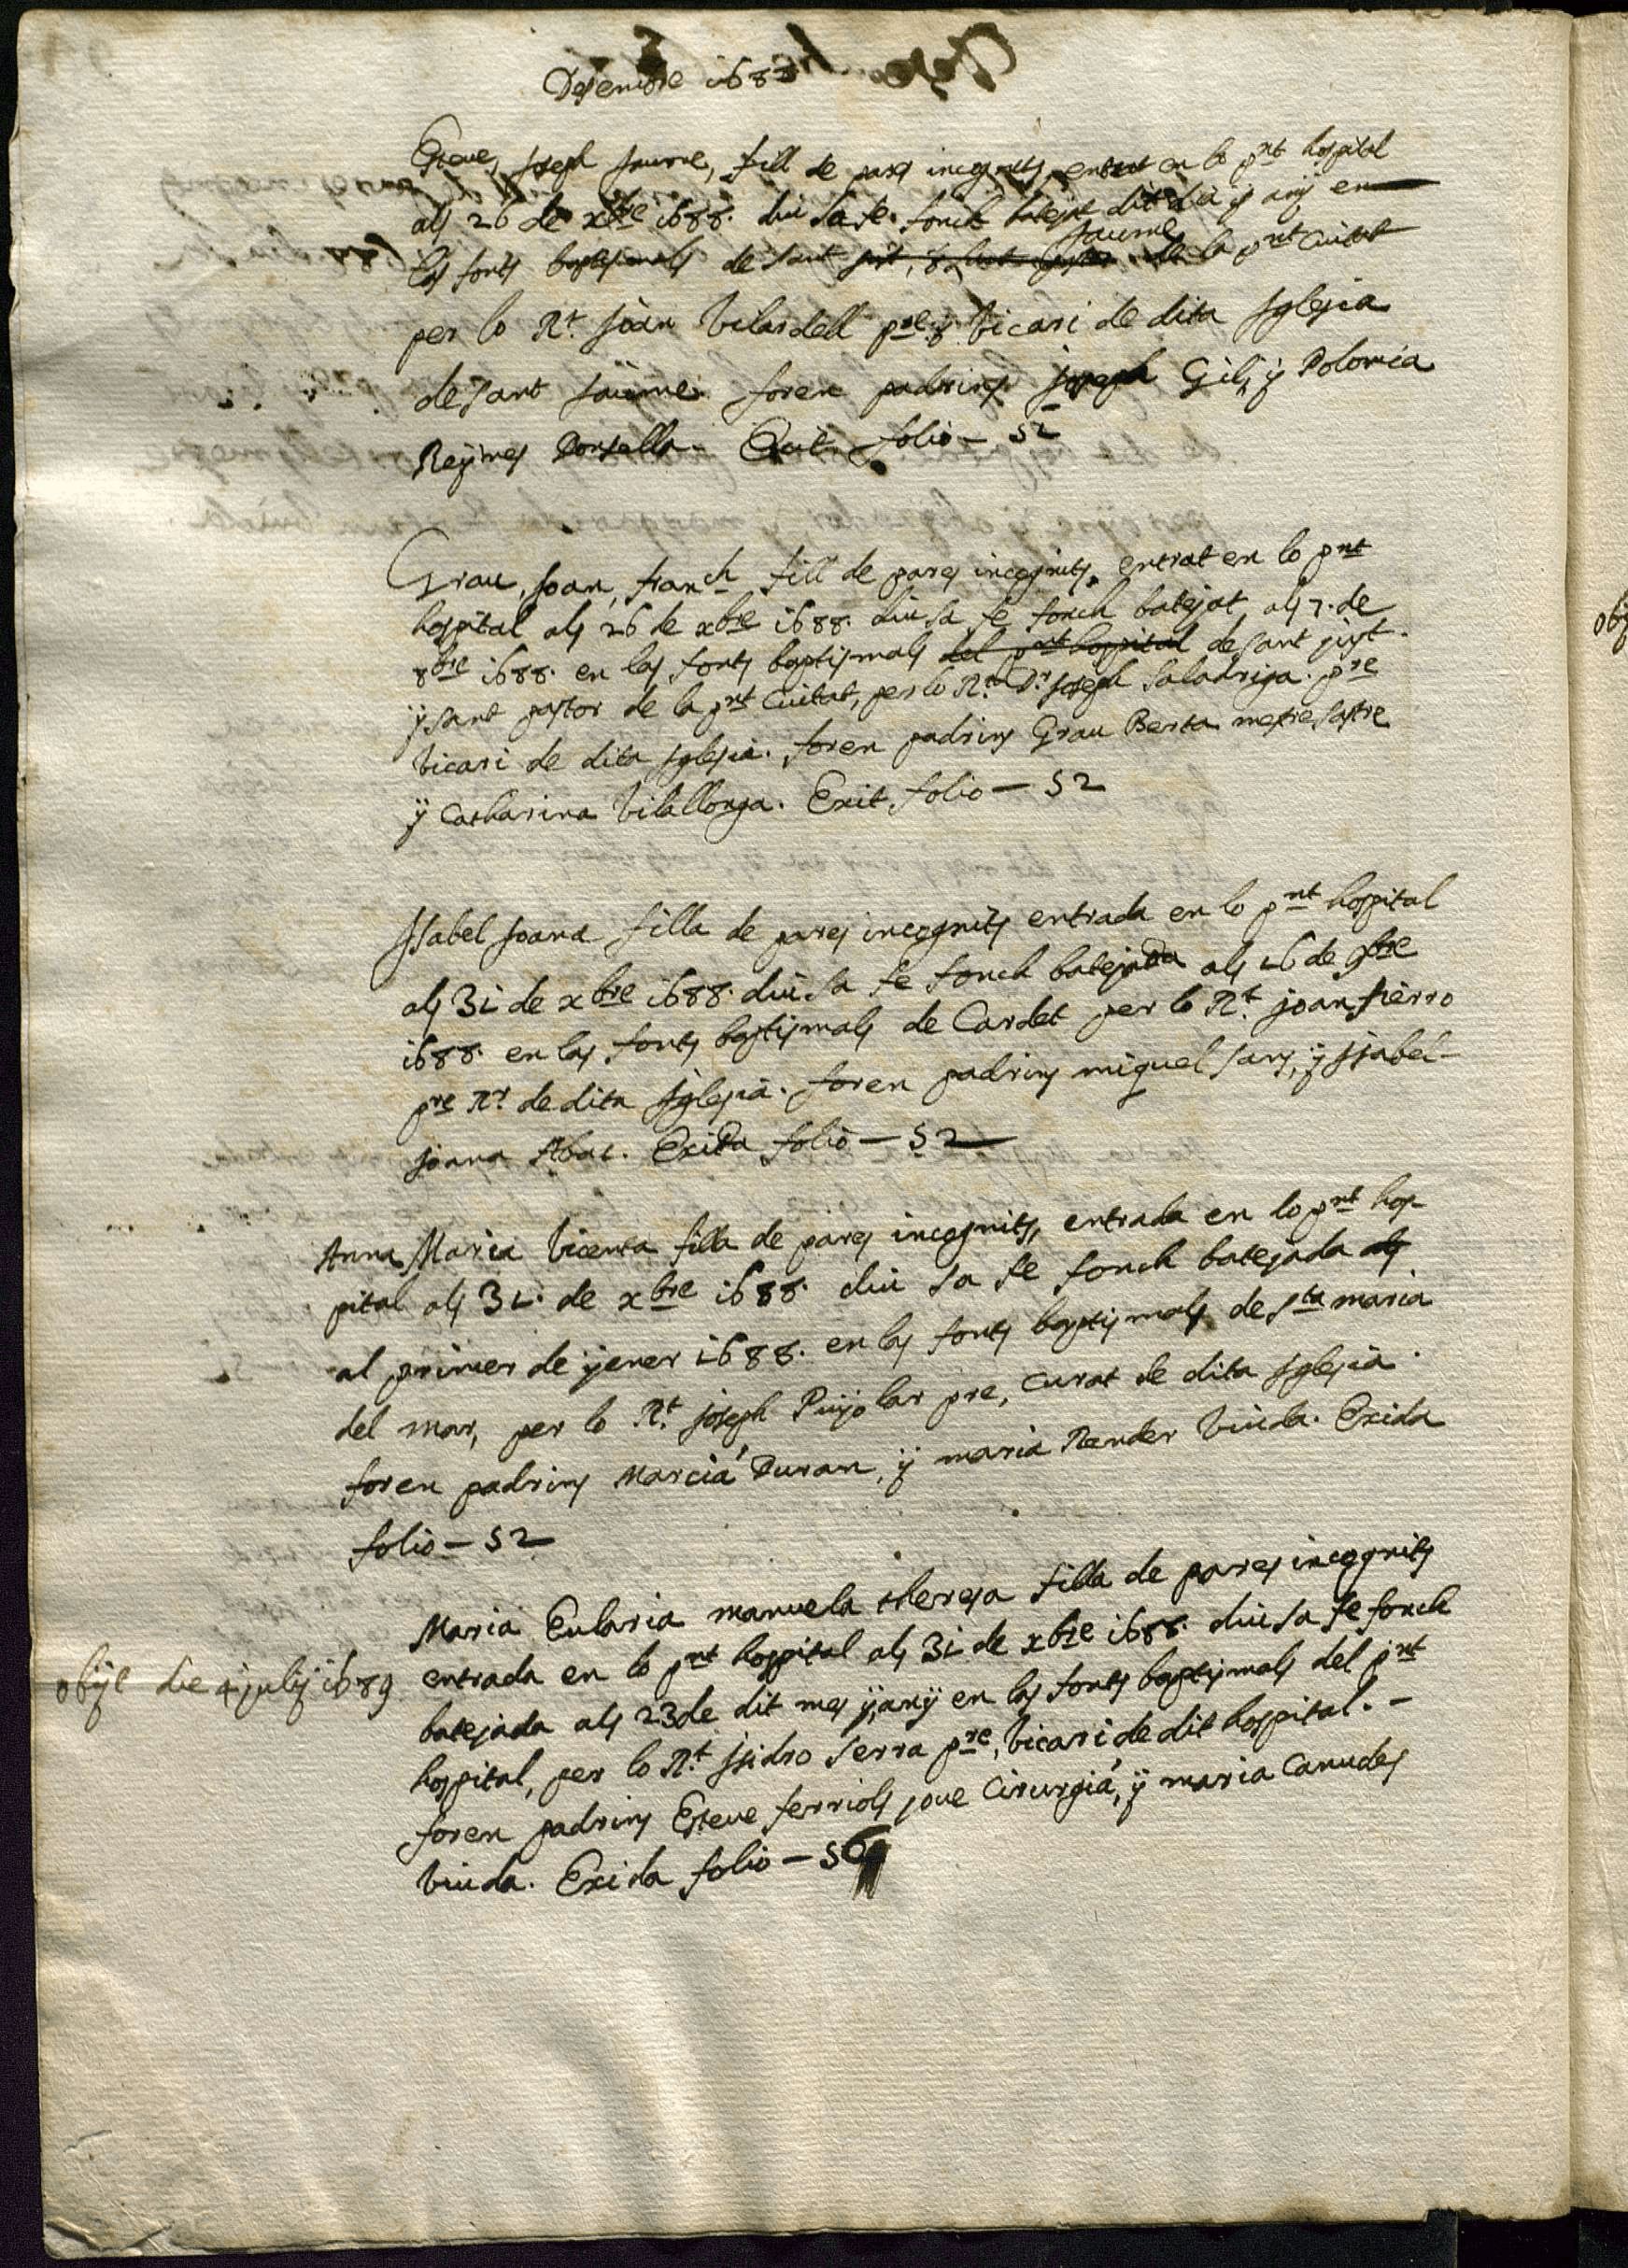 Desembre 1688
Esteve, Joseph Jaume, fill de pares incognits, entrat en lo pnt hospital
als 26 de xbre 1688. diu sa fe. fonch batejat dit dia y any en
las fonts baptismals de sant Jaume de la pnt Ciutat
per lo Rt. Joan Vilardell pre. y vicari de dita Iglesia
de sant Jaume foren padrins Joseph Gili, y Polonia
Reÿmes Donsella. Exit folio — 52
Grau, Joan, Franch fill de pares incognits, entrat en lo pnt
hospital als 26 de xbre 1688. diu sa fe fonch batejat als 7. de
8bre 1688. en las fonts baptismals del pnt hospital de sant just
ÿ sant pastor de la pnt Ciutat, per lo Rt. Dr. Joseph Saladriga. pre
vicari de dita Iglesia. foren padrins Grau Berta mestre sastre
ÿ Catharina Vilallonga. Exit folio — 52
Isabel Joana filla de pares incognits entrada en lo pnt hospital
als 31 de xbre 1688. diu sa fe fonch batejada als 26 de 9bre
1688. en las fonts baptismals de Cardet per lo Rt. Joan fierro
pre Rr. de dita Iglesia. foren padrins miquel sans, ÿ Isabel
Joana Abac. Exida folio — 52
Anna Maria Vicenta filla de pares incognits, entrada en lo pnt hos-
pital als 31. de xbre 1688. diu sa fe fonch batejada als
al primer de ÿener 1688. en las fonts baptismals de sta maria
del mar, per lo Rt. Joseph Pujolar pre, Curat de dita Iglesia.
foren padrins Marcià Duran, ÿ maria Render viuda. Exida
folio — 52
Maria Eularia manuela theresa filla de pares incognits
obÿt die 4 julÿ 1689 entrada en lo pnt hospital als 31 de xbre 1688. diu sa fe fonch
batejada als 23 de dit mes ÿ anÿ en las fonts baptismals del pnt
hospital, per lo Rt. Isidro Serra pre, vicari de dit hospital. —
foren padrins Esteve ferriols jove Cirurgià, ÿ maria Canudes
viuda. Exida folio — 56